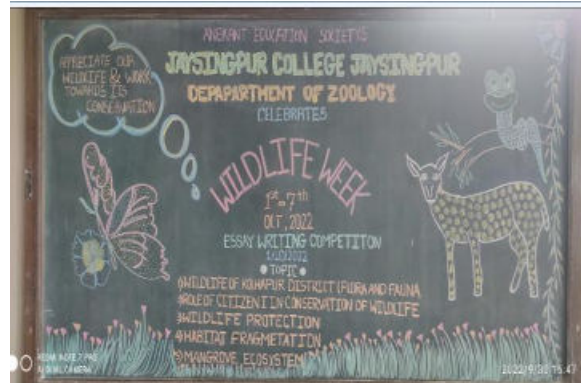 ANEKANT EDUCATION SOCIETY'S
JAYSINGPUR COLLEGE JAYSINGPUR
DEPAPARTMENT OF ZOOLOGY
CELEBRATES
APPRECIATE OUR
WILDLIFE & WORK
TOWARDS ITS
CONSERVATION
WILDLIFE WEEK
1st - 7th
OCT, 2022
ESSAY WRITING COMPETITON
TOPIC
1) WILDLIFE OF KOLHAPUR DISTRICT (FLORA AND FAUNA
ROLE OF CITIZEN IN CONSERVATION OF WILDLIFE
3) WILDLIFE PROTECTION
4) HABITAT FRAGMETATION
5) MANGROVE ECOSYSTEM
REDMI NOTE 7 PRO
AI DUAL CAMERA